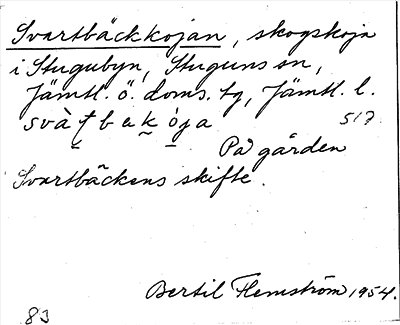 Svartbäckkojan, skogskoja
i Stugubyn, Stuguns sn,
Jämtl. ö. doms. tg, Jämtl. l.
svàṭbakója 517
På gården
Svartbäckens skifte.
Bertil Flemström, 1954.
83